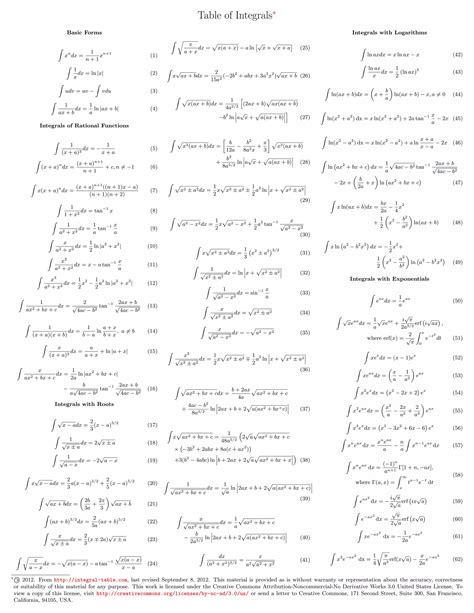 Table of Integrals*
Basic Forms
∫ xⁿdx = 1/(n+1) xⁿ⁺¹ (1)
∫ 1/x dx = ln |x| (2)
∫ udv = uv − ∫ vdu (3)
∫ 1/(ax + b) dx = 1/a ln |ax + b| (4)
Integrals of Rational Functions
∫ 1/(x + a)² dx = − 1/(x + a) (5)
∫ (x + a)ⁿdx = (x + a)ⁿ⁺¹/(n + 1), n ≠ −1 (6)
∫ x(x + a)ⁿdx = (x + a)ⁿ⁺¹((n + 1)x − a)/((n + 1)(n + 2)) (7)
∫ 1/(1 + x²) dx = tan⁻¹ x (8)
∫ 1/(a² + x²) dx = 1/a tan⁻¹ x/a (9)
∫ x/(a² + x²) dx = 1/2 ln |a² + x²| (10)
∫ x²/(a² + x²) dx = x − a tan⁻¹ x/a (11)
∫ x³/(a² + x²) dx = 1/2 x² − 1/2 a² ln |a² + x²| (12)
∫ 1/(ax² + bx + c) dx = 2/√(4ac − b²) tan⁻¹ (2ax + b)/√(4ac − b²) (13)
∫ 1/((x + a)(x + b)) dx = 1/(b − a) ln (a + x)/(b + x), a ≠ b (14)
∫ x/(x + a)² dx = a/(a + x) + ln |a + x| (15)
∫ x/(ax² + bx + c) dx = 1/2a ln |ax² + bx + c|
− b/(a√(4ac − b²)) tan⁻¹ (2ax + b)/√(4ac − b²) (16)
Integrals with Roots
∫ √(x − a) dx = 2/3 (x − a)³ᐟ² (17)
∫ 1/√(x ± a) dx = 2√(x ± a) (18)
∫ 1/√(a − x) dx = −2√(a − x) (19)
(20)
∫ √(ax + b) dx = (2b/3a + 2x/3) √(ax + b) (21)
∫ (ax + b)³ᐟ² dx = 2/5a (ax + b)⁵ᐟ² (22)
∫ x/√(x ± a) dx = 2/3 (x ∓ 2a)√(x ± a) (23)
(24)
∫ √(x/(a + x)) dx = √(x(a + x)) − a ln [√x + √(x + a)] (25)
∫ x√(ax + b) dx = 2/15a² (−2b² + abx + 3a²x²)√(ax + b) (26)
∫ √(x(ax + b)) dx = 1/4a³ᐟ² [(2ax + b)√(ax(ax + b))
−b² ln |a√x + √(a(ax + b))|] (27)
∫ √(x³(ax + b)) dx = [b/12a − b²/8a²x + x/3] √(x³(ax + b))
+ b³/8a⁵ᐟ² ln |a√x + √(a(ax + b))| (28)
∫ √(x² ± a²) dx = 1/2 x√(x² ± a²) ± 1/2 a² ln |x + √(x² ± a²)|
(29)
∫ √(a² − x²) dx = 1/2 x√(a² − x²) + 1/2 a² tan⁻¹ x/√(a² − x²)
(30)
∫ x√(x² ± a²) dx = 1/3 (x² ± a²)³ᐟ² (31)
∫ 1/√(x² ± a²) dx = ln |x + √(x² ± a²)| (32)
∫ 1/√(a² − x²) dx = sin⁻¹ x/a (33)
∫ x/√(x² ± a²) dx = √(x² ± a²) (34)
∫ x/√(a² − x²) dx = −√(a² − x²) (35)
∫ x²/√(x² ± a²) dx = 1/2 x√(x² ± a²) ∓ 1/2 a² ln |x + √(x² ± a²)|
(36)
∫ √(ax² + bx + c) dx = (b + 2ax)/4a √(ax² + bx + c)
+ (4ac − b²)/8a³ᐟ² ln |2ax + b + 2√(a(ax² + bx + c))| (37)
(38)
∫ 1/√(ax² + bx + c) dx = 1/√a ln |2ax + b + 2√(a(ax² + bx + c))|
(39)
(40)
∫ dx/(a² + x²)³ᐟ² = x/(a²√(a² + x²)) (41)
Integrals with Logarithms
∫ ln ax dx = x ln ax − x (42)
∫ ln ax/x dx = 1/2 (ln ax)² (43)
∫ ln(ax + b) dx = (x + b/a) ln(ax + b) − x, a ≠ 0 (44)
∫ ln(x² + a²) dx = x ln(x² + a²) + 2a tan⁻¹ x/a − 2x (45)
∫ ln(x² − a²) dx = x ln(x² − a²) + a ln (x + a)/(x − a) − 2x (46)
∫ ln (ax² + bx + c) dx = 1/a √(4ac − b²) tan⁻¹ (2ax + b)/√(4ac − b²)
−2x + (b/2a + x) ln (ax² + bx + c) (47)
∫ x ln(ax + b) dx = bx/2a − 1/4 x²
+ 1/2 (x² − b²/a²) ln(ax + b) (48)
∫ x ln (a² − b²x²) dx = −1/2 x² +
1/2 (x² − a²/b²) ln (a² − b²x²) (49)
Integrals with Exponentials
∫ eᵃˣ dx = 1/a eᵃˣ (50)
∫ √x eᵃˣ dx = 1/a √x eᵃˣ + i√π/2a³ᐟ² erf (i√(ax)),
where erf(x) = 2/√π ∫₀ˣ e⁻ᵗ² dt (51)
∫ xeˣ dx = (x − 1)eˣ (52)
∫ xeᵃˣ dx = (x/a − 1/a²) eᵃˣ (53)
∫ x²eˣ dx = (x² − 2x + 2) eˣ (54)
∫ x²eᵃˣ dx = (x²/a − 2x/a² + 2/a³) eᵃˣ (55)
∫ x³eˣ dx = (x³ − 3x² + 6x − 6) eˣ (56)
∫ xⁿeᵃˣ dx = xⁿeᵃˣ/a − n/a ∫ xⁿ⁻¹eᵃˣ dx (57)
∫ xⁿeᵃˣ dx = (−1)ⁿ/aⁿ⁺¹ Γ[1 + n, −ax],
where Γ(a, x) = ∫ₓ^∞ tᵃ⁻¹e⁻ᵗ dt (58)
∫ eᵃˣ² dx = − i√π/2√a erf (ix√a) (59)
∫ e⁻ᵃˣ² dx = √π/2√a erf (x√a) (60)
∫ xe⁻ᵃˣ² dx = − 1/2a e⁻ᵃˣ² (61)
∫ x²e⁻ᵃˣ² dx = 1/4 √(π/a³) erf(x√a) − x/2a e⁻ᵃˣ² (62)
*© 2012. From http://integral-table.com, last revised September 8, 2012. This material is provided as is without warranty or representation about the accuracy, correctness
or suitability of this material for any purpose. This work is licensed under the Creative Commons Attribution-Noncommercial-No Derivative Works 3.0 United States License. To
view a copy of this license, visit http://creativecommons.org/licenses/by-nc-nd/3.0/us/ or send a letter to Creative Commons, 171 Second Street, Suite 300, San Francisco,
California, 94105, USA.